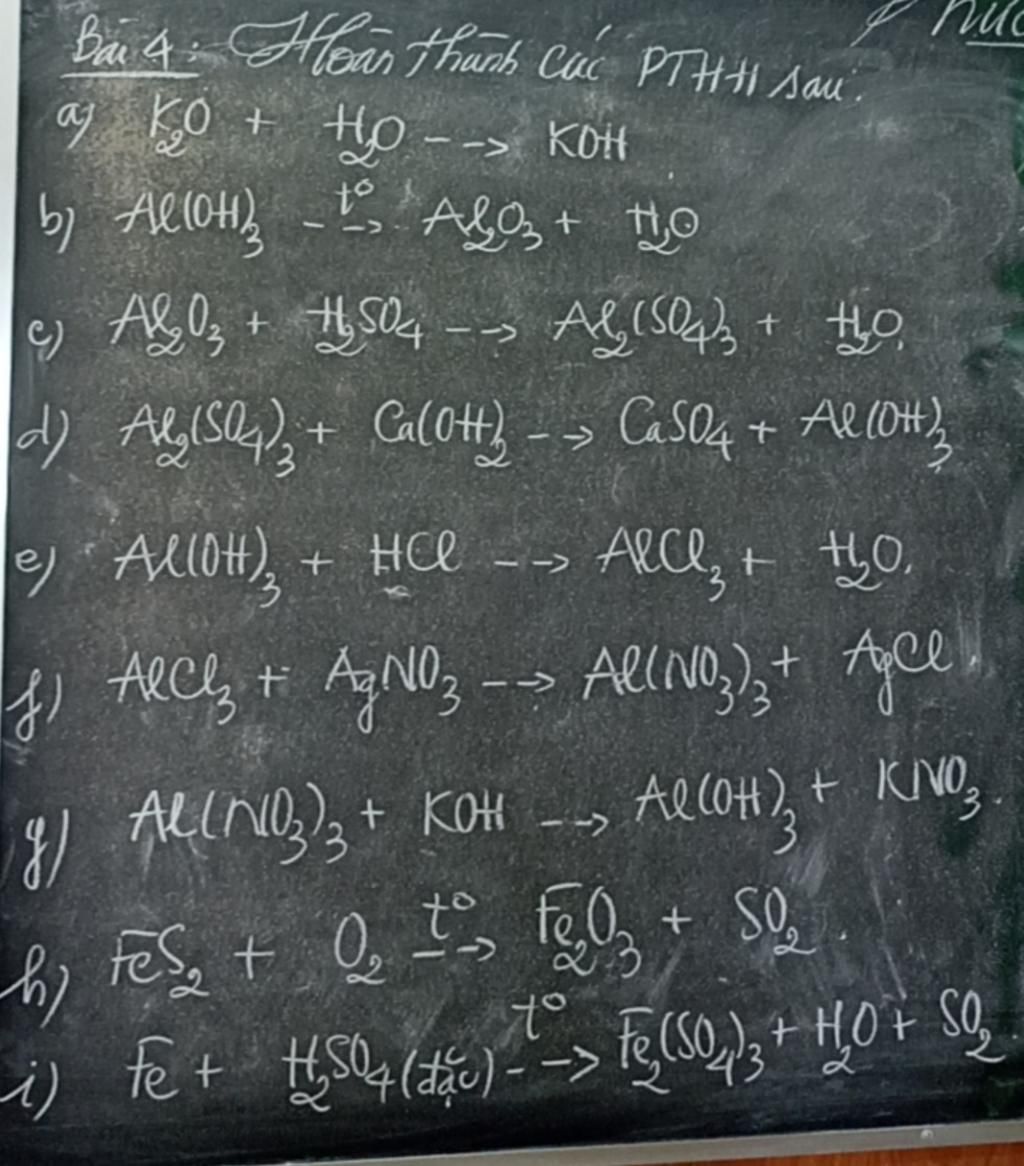 Bài 4: Hoàn thành các PTHH sau:
a) K₂O + H₂O --> KOH
b) Al(OH)₃ --t°--> Al₂O₃ + H₂O
c) Al₂O₃ + H₂SO₄ --> Al₂(SO₄)₃ + H₂O.
d) Al₂(SO₄)₃ + Ca(OH)₂ --> CaSO₄ + Al(OH)₃
e) Al(OH)₃ + HCl --> AlCl₃ + H₂O.
f) AlCl₃ + AgNO₃ --> Al(NO₃)₃ + AgCl.
g) Al(NO₃)₃ + KOH --> Al(OH)₃ + KNO₃.
h) FeS₂ + O₂ --t°--> Fe₂O₃ + SO₂.
i) Fe + H₂SO₄(đặc) --t°--> Fe₂(SO₄)₃ + H₂O + SO₂.